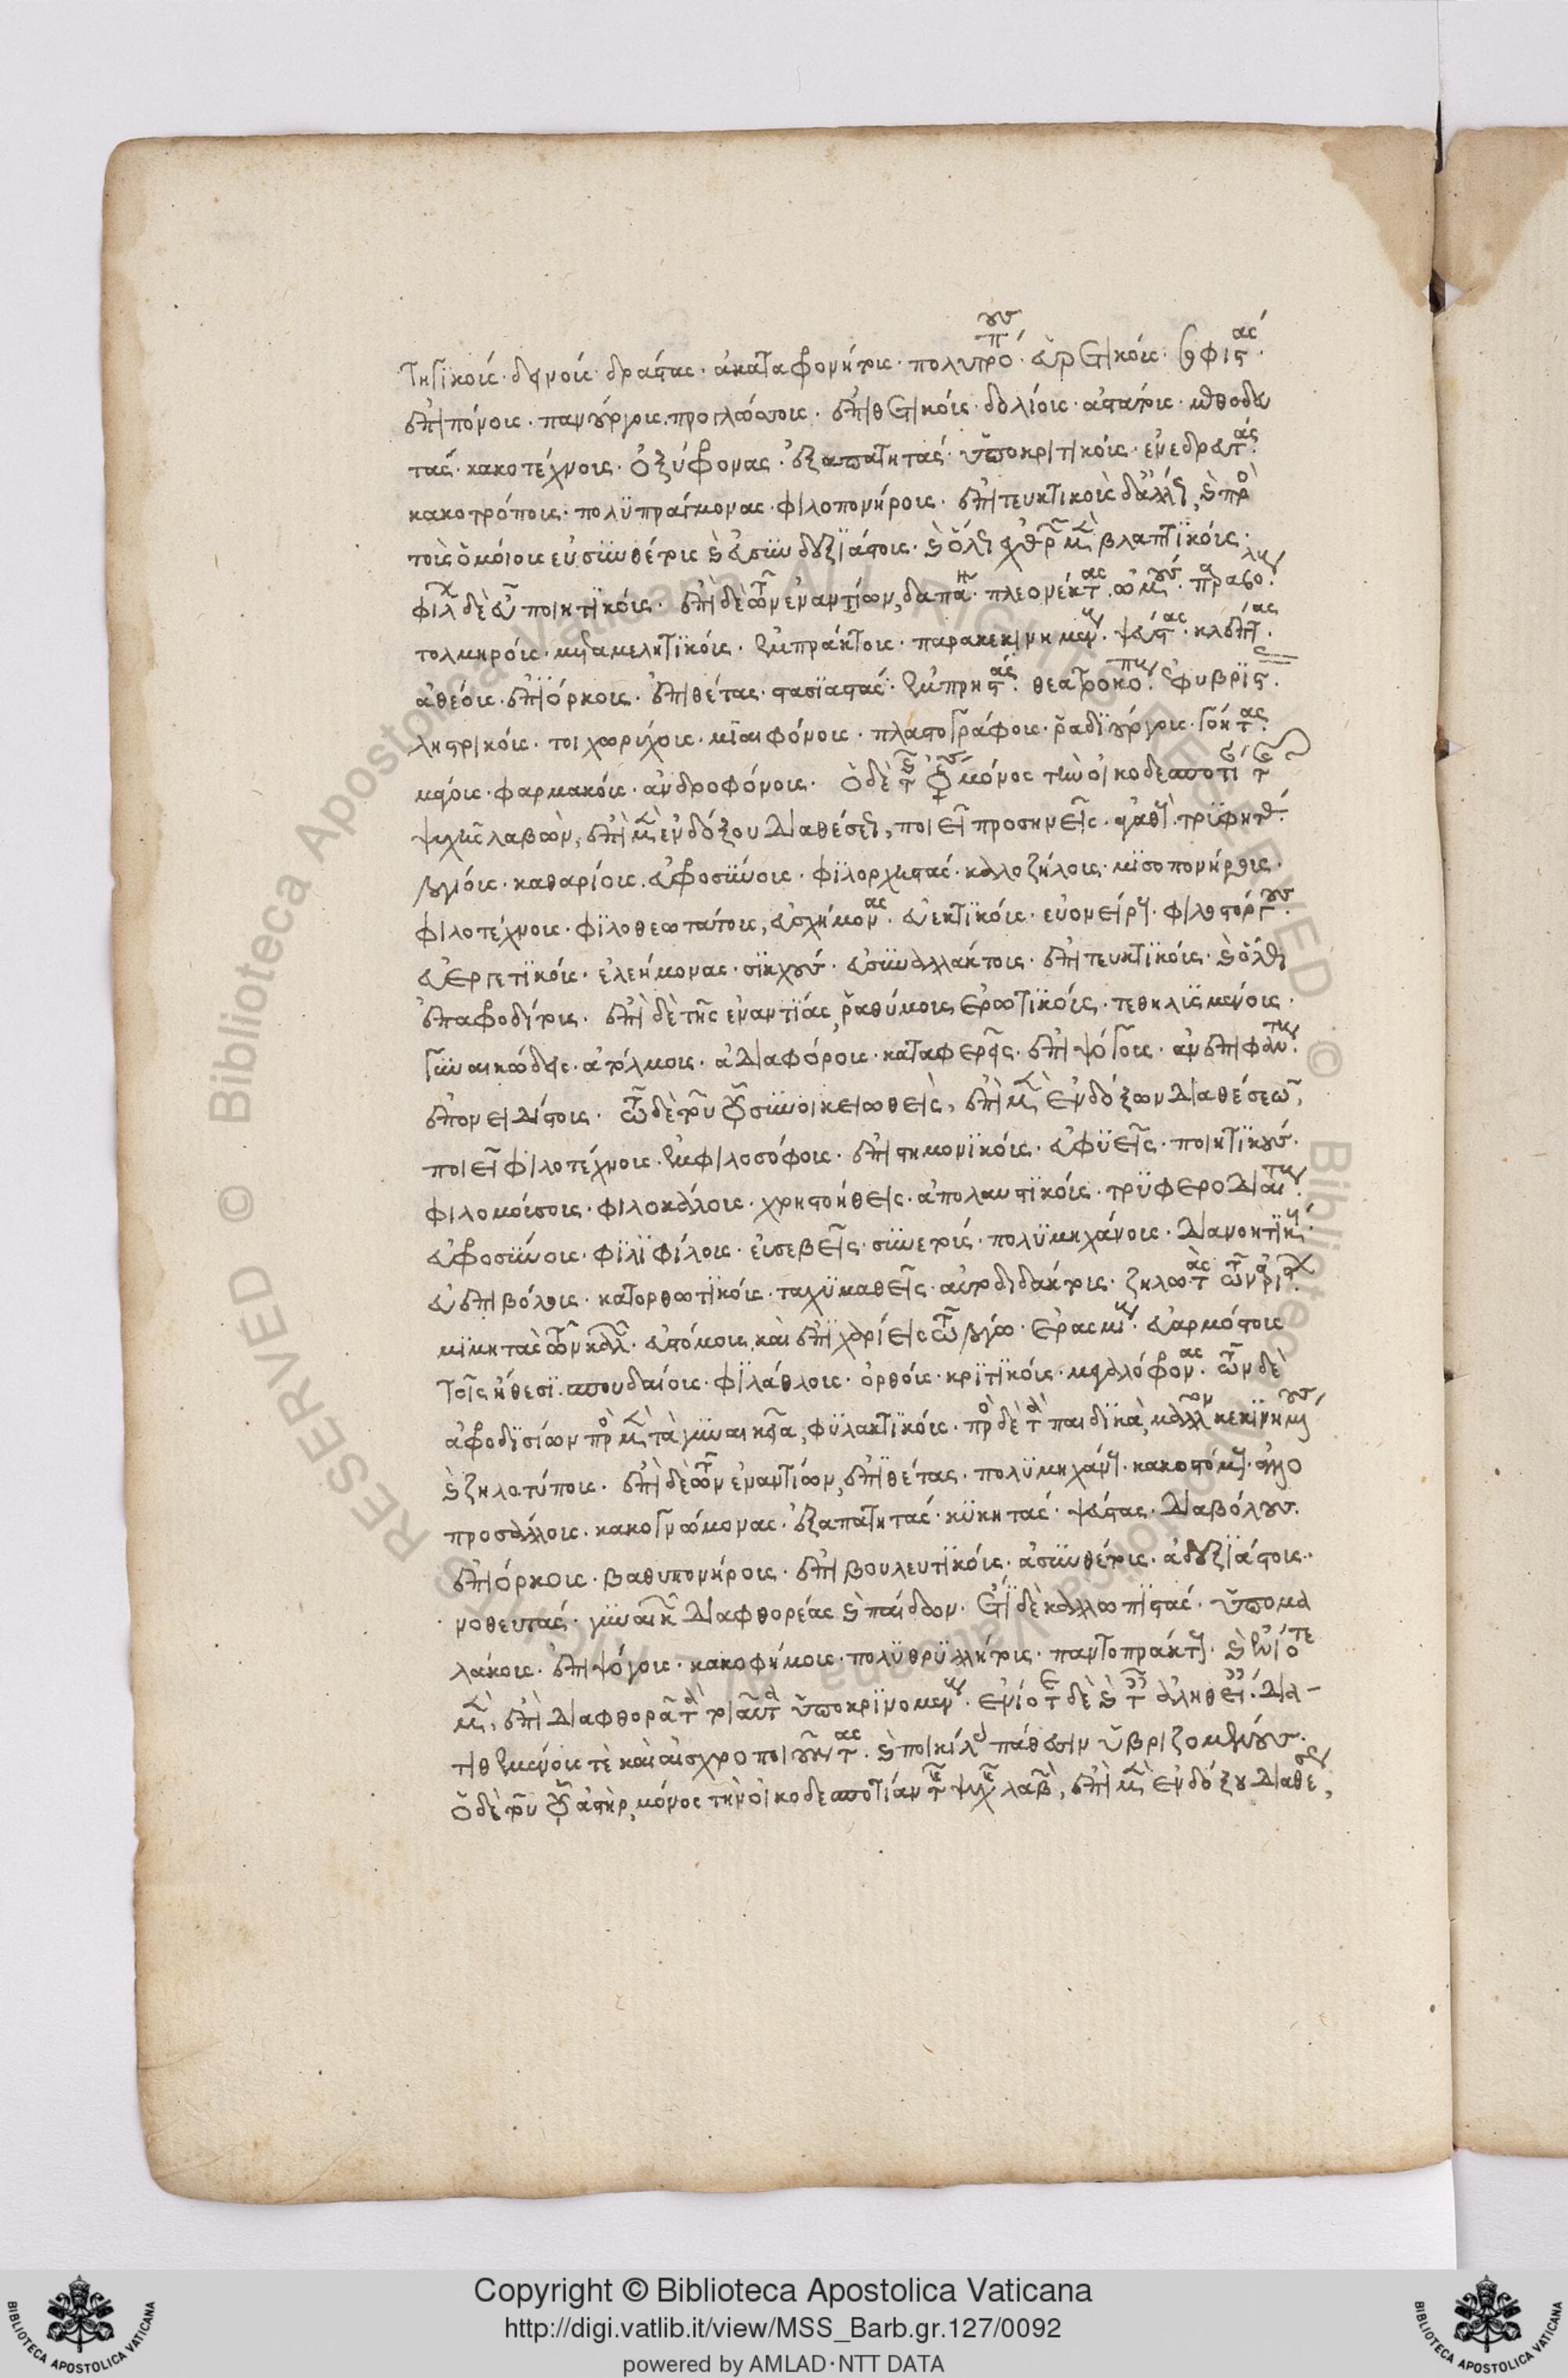 τησικοὺς· δεινοὺς· δράστας· ἀκαταφρονήτους· πολυτρόπους· εὑρετικούς· σοφιστάς·
ἐπιπόνους· πανούργους· προγλώσσους· ἐπιθετικούς· δολίους· ἀστάτους· μεθοδευ
τάς· κακοτέχνους· ὀξύφρονας· ἐξαπατητάς· ὑποκριτικούς· ἐνεδρευτάς·
κακοτρόπους· πολυπράγμονας· φιλοπονήρους· ἐπιτευκτικοὺς δὲ ἄλλως, καὶ πρὸς
τοὺς ὁμοίους εὐσυνθέτους καὶ εὐσυνδεξιάστους· καὶ ὅλως ἐχθρῶν μὲν βλαπτικούς·
φίλων δὲ εὖ ποιητικούς· ἐπὶ δὲ τῶν ἐναντίων, δαπανηροὺς· πλεονέκτας· ὠμούς· παραβόλους·
τολμηρούς· μεταμελητικούς· ἐμπράκτους· παρακεκινημένους· ψεύστας· κλέπτας·
ἀθέους· ἐπιόρκους· ἐπιθέτας· στασιαστάς· ἐμπρηστάς· θεατροκόπους· ἐφυβρίστας·
ληστρικούς· τοιχωρύχους· μιαιφόνους· πλαστογράφους· ῥαδιουργούς· γόητας·
μάγους· φαρμακούς· ἀνδροφόνους· ὁ δὲ τῆς ♀ μόνος τὴν οἰκοδεσποτίαν τῆς
ψυχῆς λαβὼν, ἐπὶ μὲν ἐνδόξου διαθέσεως, ποιεῖ προσηνεῖς· ἀγαθούς· τρυφητάς·
λογίους· καθαρίους· εὐφροσύνους· φιλορχηστάς· καλοζήλους· μισοπονήρους·
φιλοτέχνους· φιλοθεωτάτους, εὐσχήμονας· εὐεκτικούς· εὐονείρους· φιλοστόργους·
εὐεργετικούς· ἐλεήμονας· σικχούς· εὐσυναλλάκτους· ἐπιτευκτικούς· καὶ ὅλως
ἐπαφροδίτους· ἐπὶ δὲ τῆς ἐναντίας, ῥαθύμους ἐρωτικούς· τεθηλυσμένους·
γυναικώδεις· ἀτόλμους· ἀδιαφόρους· καταφερεῖς· ἐπιψόγους· ἀνεπιφάντους·
ἐπονειδίστους· τῷ δὲ τοῦ ☿ συνοικειωθεὶς, ἐπὶ μὲν ἐνδόξων διαθέσεων,
ποιεῖ φιλοτέχνους· ἐμφιλοσόφους· ἐπιστημονικούς· εὐφυεῖς· ποιητικούς·
φιλομούσους· φιλοκάλους· χρηστοήθεις· ἀπολαυστικούς· τρυφεροδιαίτους·
εὐφροσύνους· φιλιφίλους· εὐσεβεῖς· συνετούς· πολυμηχάνους· διανοητικούς·
εὐεπιβόλους· κατορθωτικούς· ταχυμαθεῖς· αὐτοδιδάκτους· ζηλωτὰς τῶν ἀρίστων·
μιμητὰς τῶν καλῶν· εὐστόμους, καὶ ἐπιχάριτας τῷ λόγῳ· ἐρασμίους· εὐαρμόστους
τοῖς ἤθεσι· σπουδαίους· φιλάθλους· ὀρθούς· κριτικούς· μεγαλόφρονας· τῶν δὲ
ἀφροδισίων πρὸς μὲν τὰ γυναικεῖα, φυλακτικούς· πρὸς δὲ τὰ παιδικὰ, μᾶλλον κεκινημένους
καὶ ζηλοτύπους· ἐπὶ δὲ τῶν ἐναντίων, ἐπιθέτας· πολυμηχάνους· κακοστόμους· ἀλλο
προσάλλους· κακογνώμονας· ἐξαπατητάς· κυκητάς· ψεύστας· διαβόλους·
ἐπιόρκους· βαθυπονήρους· ἐπιβουλευτικούς· ἀσυνθέτους· ἀδεξιάστους·
νοθευτάς· γυναικῶν διαφθορέας καὶ παίδων· ἔτι δὲ καλλωπιστάς· ὑπομα
λάκους· ἐπιψόγους· κακοφήμους· πολυθρυλλήτους· παντοπράκτους· καὶ ἐνίοτε
μὲν, ἐπὶ διαφθορᾷ τὰ τοιαῦτα ὑποκρινομένους· ἐνίοτε δὲ καὶ ταῖς ἀληθείαις· δια-
τιθεμένους τὲ καὶ αἰσχροποιοῦντας· καὶ ποικίλοις πάθεσιν ὑβριζομένους·
ὁ δὲ τοῦ ☿ ἀστὴρ, μόνος τὴν οἰκοδεσποτίαν τῆς ψυχῆς λαβὼν, ἐπὶ μὲν ἐνδόξου διαθέσεως,
Copyright © Biblioteca Apostolica Vaticana
http://digi.vatlib.it/view/MSS_Barb.gr.127/0092
powered by AMLAD·NTT DATA